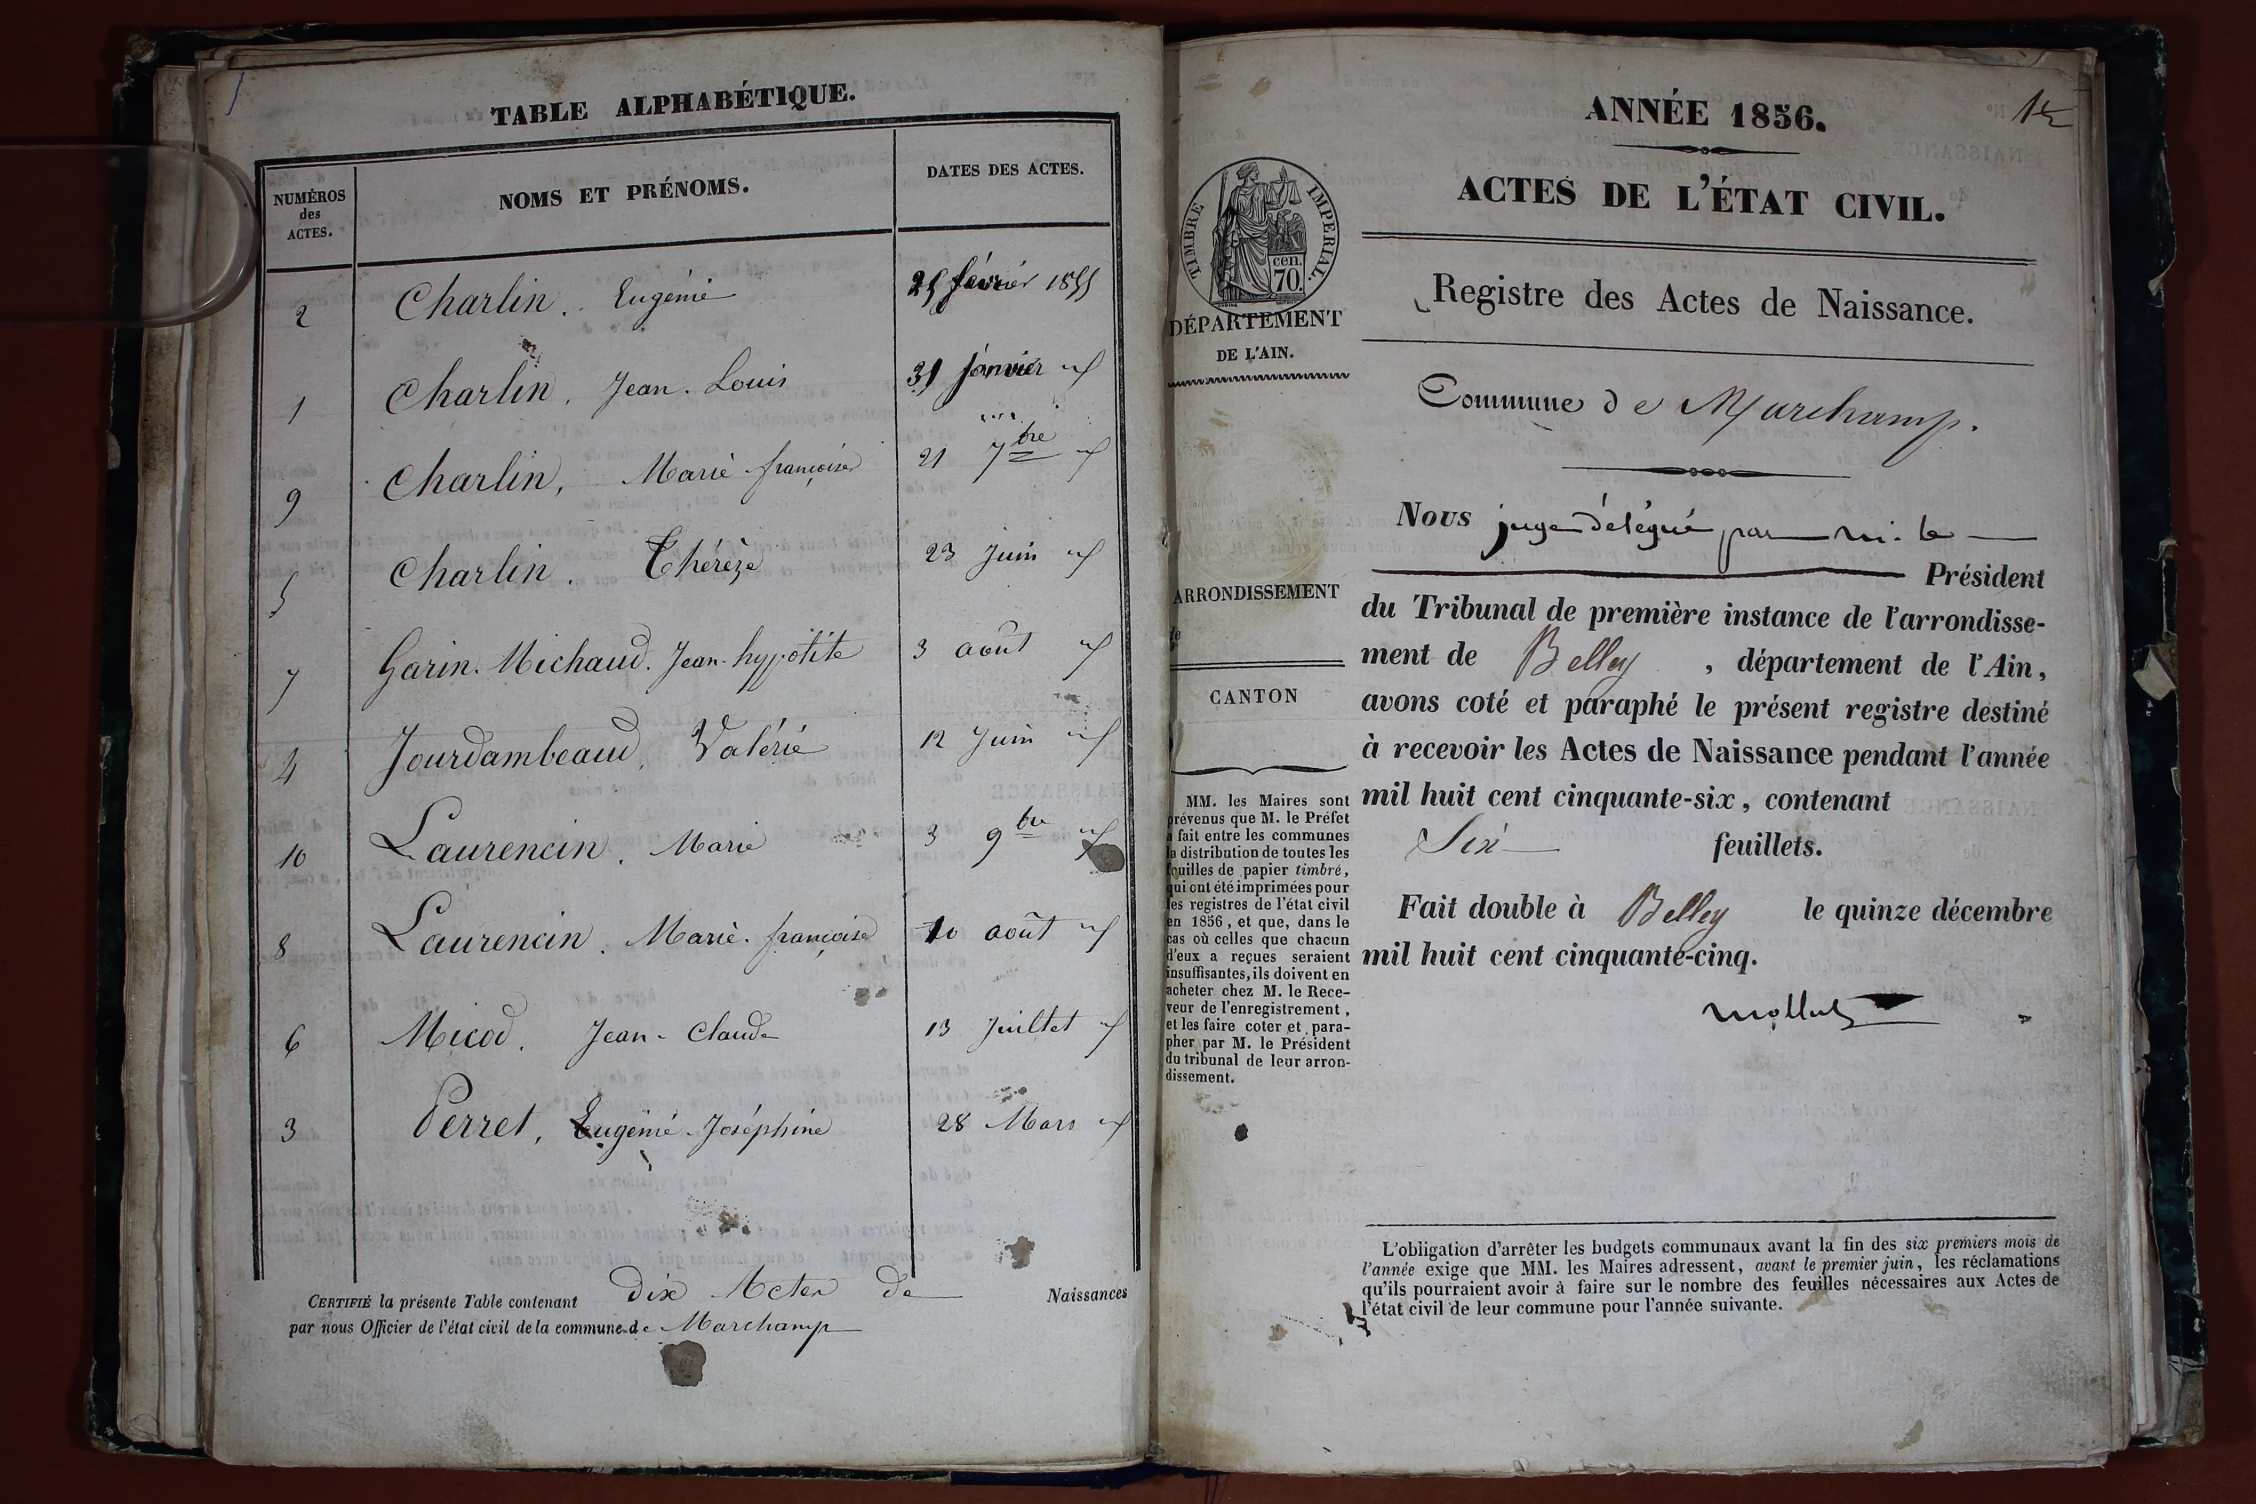 TABLE ALPHABÉTIQUE.
NUMÉROS des ACTES.
NOMS ET PRÉNOMS.
DATES DES ACTES.
2 Charlin. Eugénie 25 février 1855
1 Charlin, Jean. Louis 31 janvier
9 Charlin, Marie françoise 21 7bre
5 Charlin. Thérèze 23 Juin
7 Garin. Michaud. Jean. hypolite 3 août
4 Jourdambeaud, Valérie 12 Juin
10 Laurencin, Marie 3 9bre
8 Laurencin. Marie. françoise 10 août
6 Micod. Jean-Claude 13 Juillet
3 Perret, Eugénie Joséphine 28 Mars
CERTIFIÉ la présente Table contenant dix Actes de Naissances
par nous Officier de l'état civil de la commune de Marchamp
15
ANNÉE 1856.
ACTES DE L'ÉTAT CIVIL.
Registre des Actes de Naissance.
Commune de Marchamp.
TIMBRE IMPERIAL.
cen.
70.
DÉPARTEMENT
DE L'AIN.
ARRONDISSEMENT
de
CANTON
MM. les Maires sont
prévenus que M. le Préfet
a fait entre les communes
la distribution de toutes les
feuilles de papier timbré,
qui ont été imprimées pour
les registres de l'état civil
en 1856, et que, dans le
cas où celles que chacun
d'eux a reçues seraient
insuffisantes, ils doivent en
acheter chez M. le Rece-
veur de l'enregistrement,
et les faire coter et para-
pher par M. le Président
du tribunal de leur arron-
dissement.
Nous juge délégué par M. le
Président
du Tribunal de première instance de l'arrondisse-
ment de Belley, département de l'Ain,
avons coté et paraphé le présent registre destiné
à recevoir les Actes de Naissance pendant l'année
mil huit cent cinquante-six, contenant
Six feuillets.
Fait double à Belley le quinze décembre
mil huit cent cinquante-cinq.
L'obligation d'arrêter les budgets communaux avant la fin des six premiers mois de
l'année exige que MM. les Maires adressent, avant le premier juin, les réclamations
qu'ils pourraient avoir à faire sur le nombre des feuilles nécessaires aux Actes de
l'état civil de leur commune pour l'année suivante.